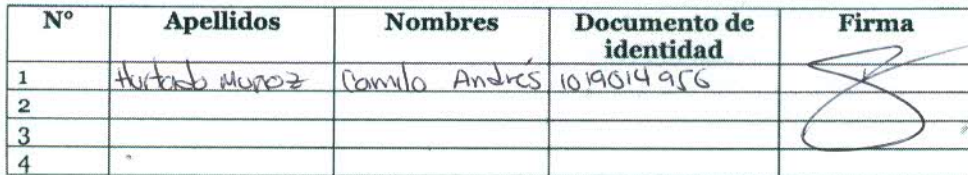 N° Apellidos Nombres Documento de identidad Firma
1 Hurtado Muñoz Camilo Andrés 1019014956
2
3
4